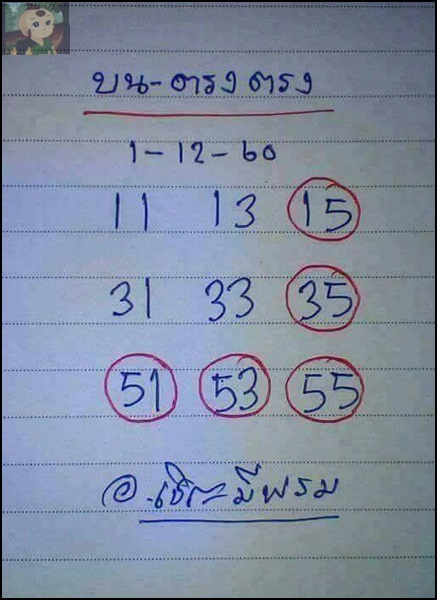 บน-ตรงตรง
1-12-60
11 13 15
31 33 35
51 53 55
มีพรม